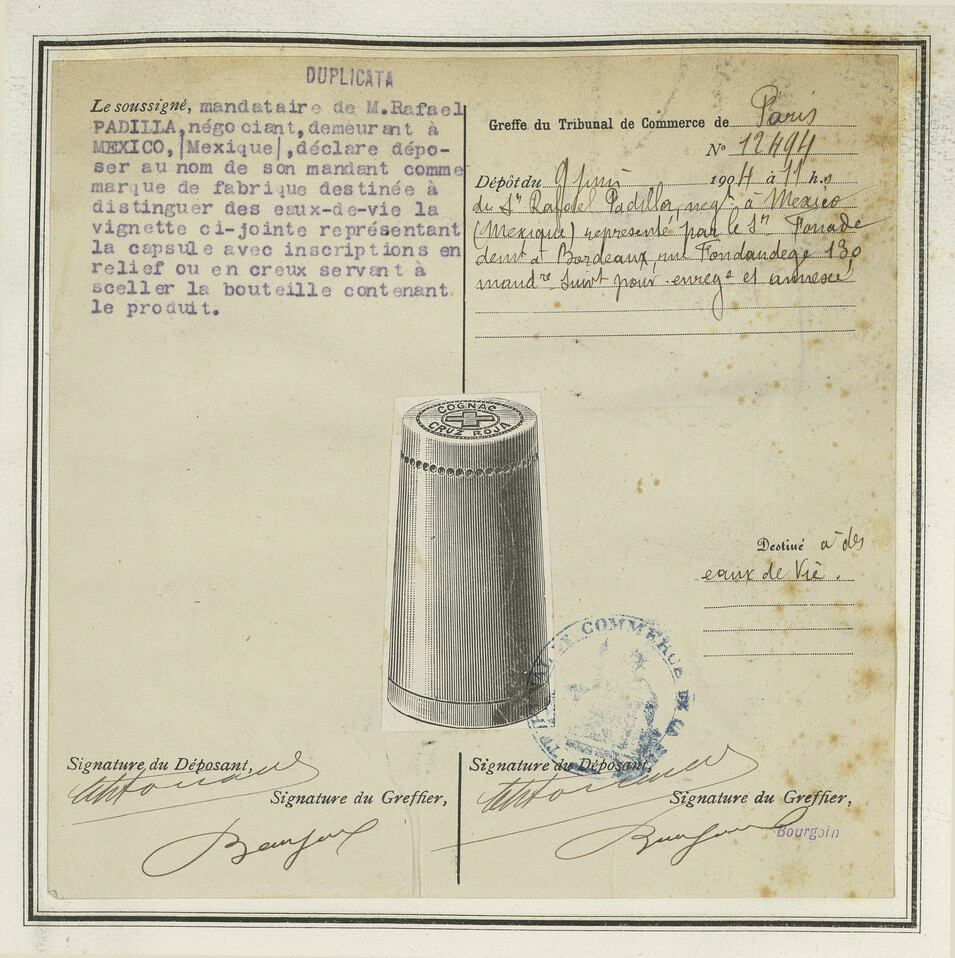 DUPLICATA
Le soussigné, mandataire de M.Rafael
PADILLA,négociant,demeurant à
MEXICO,/Mexique/,déclare dépo-
ser au nom de son mandant comme
marque de fabrique destinée à
distinguer des eaux-de-vie la
vignette ci-jointe représentant
la capsule avec inscriptions en
relief ou en creux servant à
sceller la bouteille contenant
le produit.
Greffe du Tribunal de Commerce de Paris
No 12494
Dépôt du 9 juin 1904 à 11 h.
du Sr Rafael Padilla, negt à Mexico
(Mexique) représenté par le Sr
demt à Bordeaux, rue Fondaudege 130
mandre suivt pour enregé et annexé
COGNAC
CRUZ ROJA
Destiné à des
eaux de Vie.
TRIBUNAL DE COMMERCE DE LA
Signature du Déposant,
Signature du Greffier,
Signature du Déposant,
Signature du Greffier,
Bourgoin